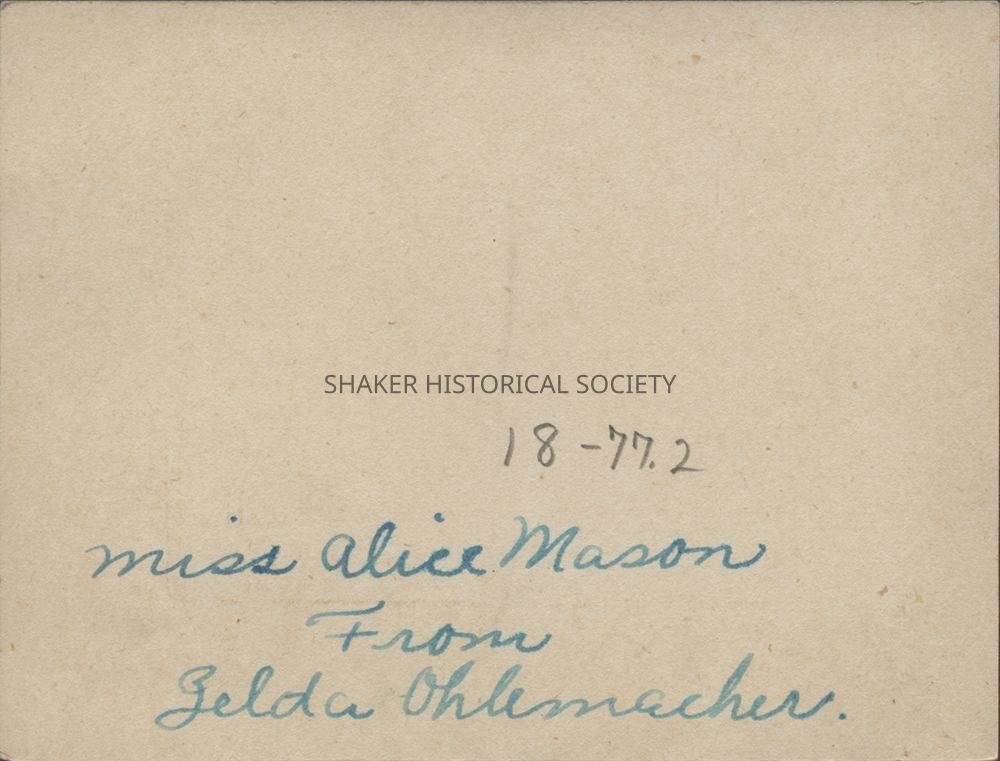 SHAKER HISTORICAL SOCIETY
18-77.2
miss Alice Mason
From
Zelda Ohlemacher.